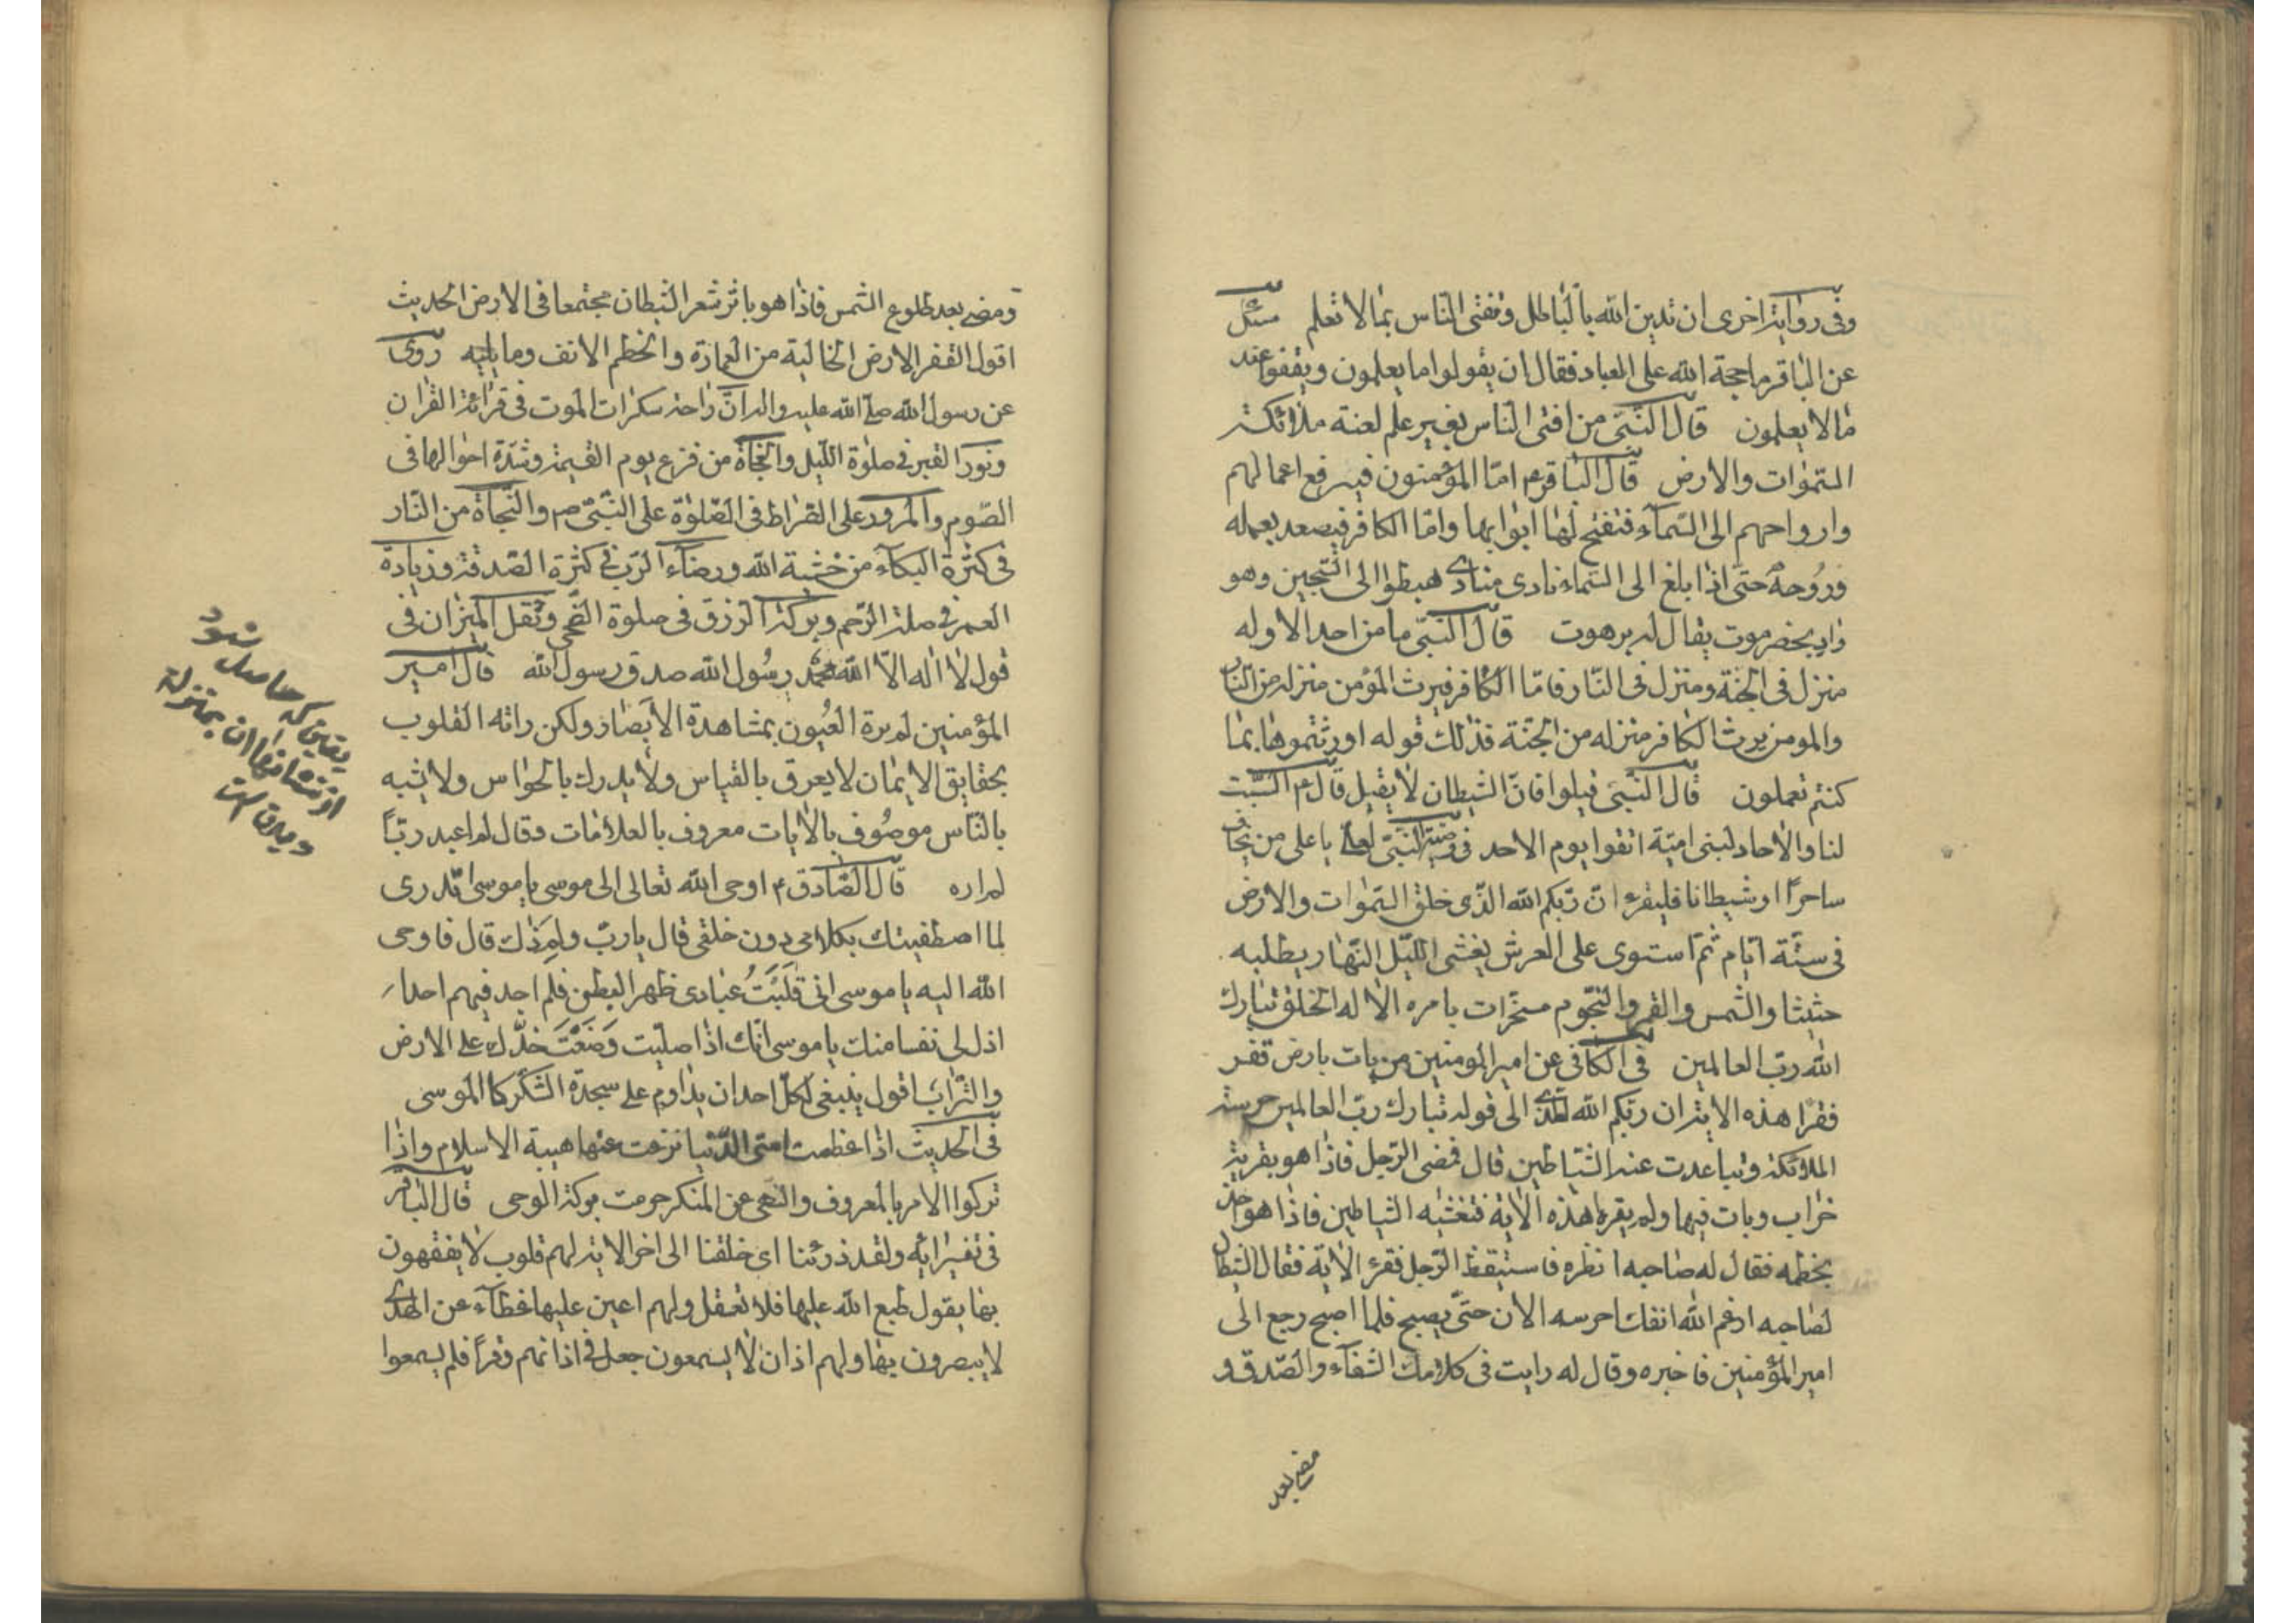 وفی روایة اخری ان تدین الله بالباطل وتفتی الناس بما لا تعلم سئل
عن الباقر ما حجة الله علی العباد فقال ان یقولوا ما یعلمون ویقفوا عند
ما لا یعلمون قال النبی من افتی الناس بغیر علم لعنة ملائکة
السموات والارض قال الباقر ع اما المؤمنون فیرفع اعمالهم
وارواحهم الی السمآء فتفتح لها ابوابها واما الکافر فیصعد بعمله
وروحه حتی اذا بلغ الی السماء نادی مناد هبطوا الی السجین وهو
واد بحضرموت یقال له برهوت قال النبی ما من احد الا وله
منزل فی الجنة ومنزل فی النار فاما الکافر فیرث المؤمن منزله من النار
والمومن یرث الکافر منزله من الجنة فذلك قوله اورثتموها بما
کنتم تعملون قال النبی قیلوا فان الشیطان لا یقیل قال ع السبت
لنا والاحاد لبنی امیة اتقوا یوم الاحد فی وصیة النبی لعلی یا علی من یخاف
ساحرًا او شیطانا فلیقرء ان ربکم الله الذی خلق السموات والارض
فی ستة ایام ثم استوی علی العرش یغشی اللیل النهار یطلبه
حثیثا والشمس والقمر والنجوم مسخرات بامره الا له الخلق تبارك
الله رب العالمین فی الکافی عن امیر المومنین من بات بارض قفر
فقرا هذه الایة ان ربکم الله الذی الی قوله تبارك رب العالمین حرسته
الملائکة وتباعدت عنه الشیاطین قال فمضی الرجل فاذا هو بقریة
خراب وبات فیها ولم یقرء هذه الایة فتغشیه الشیاطین فاذا هو اخذ
بخطمه فقال له صاحبه انظره فاستیقظ الرجل فقرء الایة فقال الشیطان
لصاحبه ارغم الله انفك احرسه الان حتی یصبح فلما اصبح رجع الی
امیر المؤمنین فاخبره وقال له رایت فی کلامك الشفآء والصدق و
مضی بعد
ومضی بعد طلوع الشمس فاذا هو باثر شعر الشیطان مجتمعا فی الارض الحدیث
اقول القفر الارض الخالیة من العمارة والخطم الانف وما یلیه روی
عن رسول الله صلی الله علیه واله ان راحة سکرات الموت فی قرائة القران
ونور القبر فی صلوة اللیل والنجاة من فزع یوم القیمة وشدة احوالها فی
الصوم والمرور علی الصراط فی الصلوة علی النبی ص والنجاة من النار
فی کثرة البکآء من خشیة الله ورضآء الرب فی کثرة الصدقة وزیادة
العمر فی صلة الرحم وبرکة الرزق فی صلوة الضحی وثقل المیزان فی
قول لا اله الا الله محمد رسول الله صدق رسول الله قال امیر
المؤمنین لم یره العیون بمشاهدة الابصار ولکن راته القلوب
بحقایق الایمان لا یعرف بالقیاس ولا یدرك بالحواس ولا یشبه
بالناس موصوف بالایات معروف بالعلامات وقال لم اعبد ربًا
لم اره قال الصادق ع اوحی الله تعالی الی موسی یا موسی اتدری
لما اصطفیتك بکلامی دون خلقی قال یا رب ولم ذلك قال فاوحی
الله الیه یا موسی انی قلبت عبادی ظهر البطن فلم اجد فیهم احدا
اذل لی نفسا منك یا موسی انك اذا صلیت وضعت خدك علی الارض
والتراب اقول ینبغی لکل احد ان یداوم علی سجدة الشکر کالموسی
فی الحدیث اذا عظمت امتی الدنیا نزعت عنها هیبة الاسلام واذا
ترکوا الامر بالمعروف والنهی عن المنکر حرمت برکة الوحی قال الباقر
فی تفسیر ایه ولقد ذرئنا ای خلقنا الی اخر الایة لهم قلوب لا یفقهون
بها یقول طبع الله علیها فلا تعقل ولهم اعین علیها غطآء عن الهدی
لا یبصرون بها ولهم اذان لا یسمعون جعل فی اذانهم وقرًا فلم یسمعوا
یقینی که حاصل شود
از نشانها ان بمنزلة
دیدن است